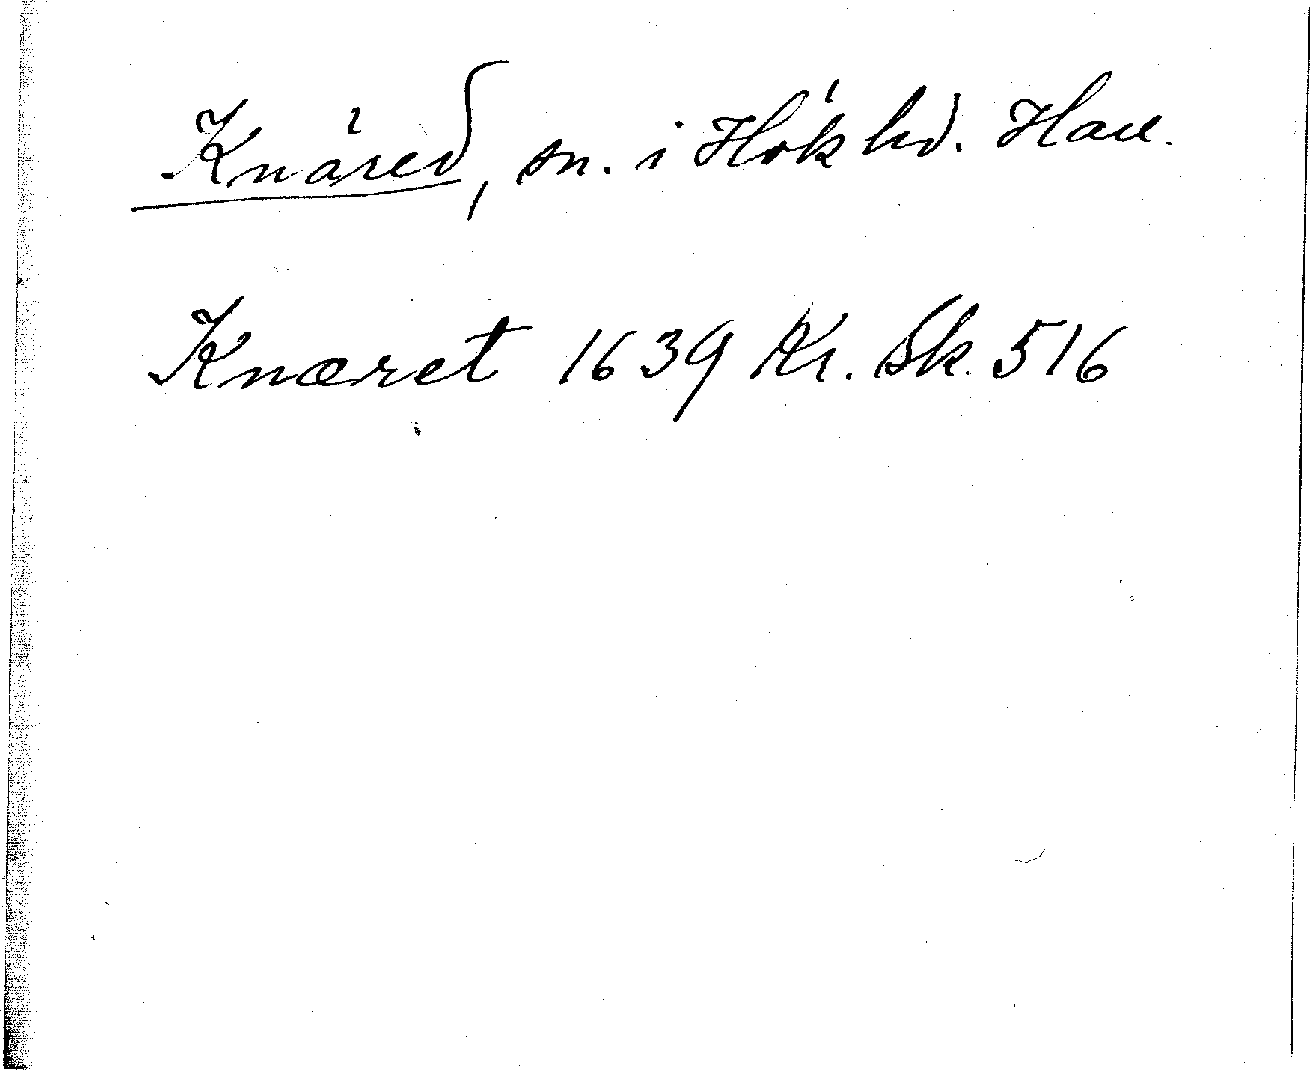 Knäred, sn. i Hök hd. Hall.
Knæret 1639 Kr. Sk. 516